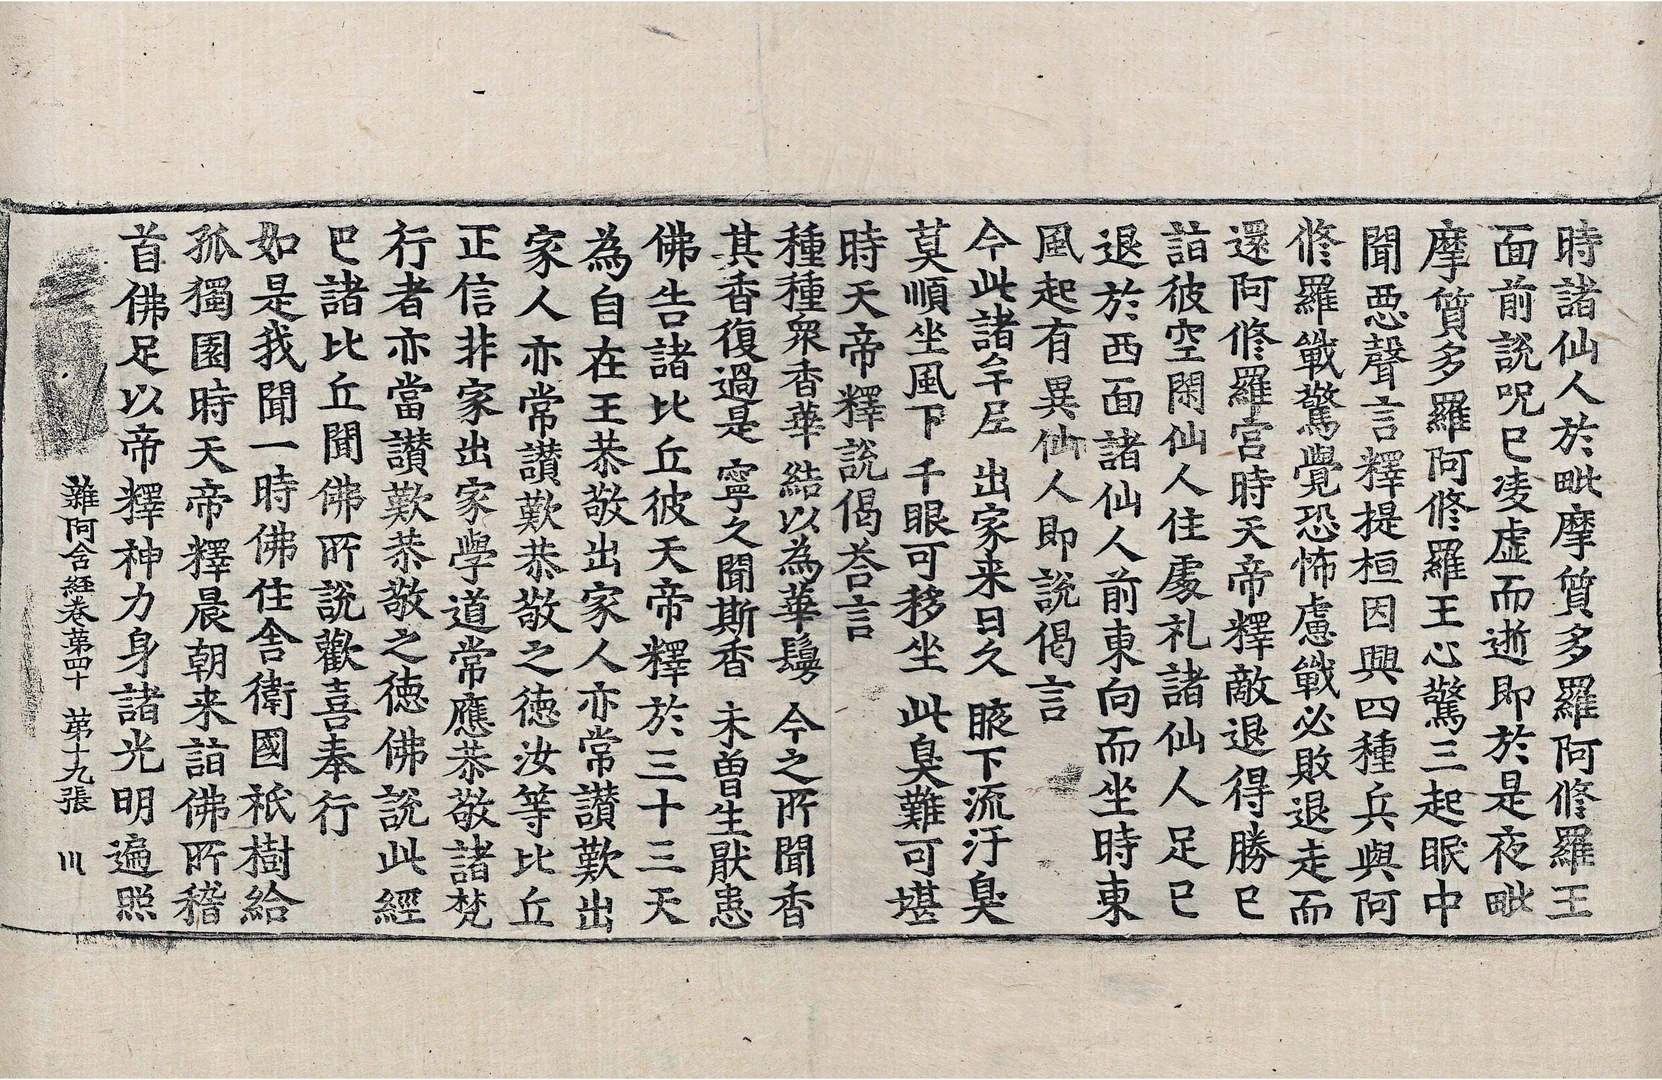 時諸仙人於毗摩質多羅阿修羅王
面前說呪已凌虛而逝即於是夜毗
摩質多羅阿修羅王心驚三起眠中
聞惡聲言釋提桓因興四種兵與阿
修羅戰驚覺恐怖慮戰必敗退走而
還阿修羅宮時天帝釋敵退得勝已
詣彼空閑仙人住處礼諸仙人足已
退於西面諸仙人前東向而坐時東
風起有異仙人即說偈言
今此諸牟尼 出家来日久 腋下流汙臭
莫順坐風下 千眼可移坐 此臭難可堪
時天帝釋說偈荅言
種種衆香華 結以為華鬘 今之所聞香
其香復過是 寧久聞斯香 未曽生猒患
佛告諸比丘彼天帝釋於三十三天
為自在王恭敬出家人亦常讃歎出
家人亦常讃歎恭敬之徳汝等比丘
正信非家出家學道常應恭敬諸梵
行者亦當讃歎恭敬之徳佛說此經
已諸比丘聞佛所說歡喜奉行
如是我聞一時佛住舎衛國祇樹給
孤獨園時天帝釋晨朝来詣佛所稽
首佛足以帝釋神力身諸光明遍照
雜阿含經卷第四十 第十九張 川